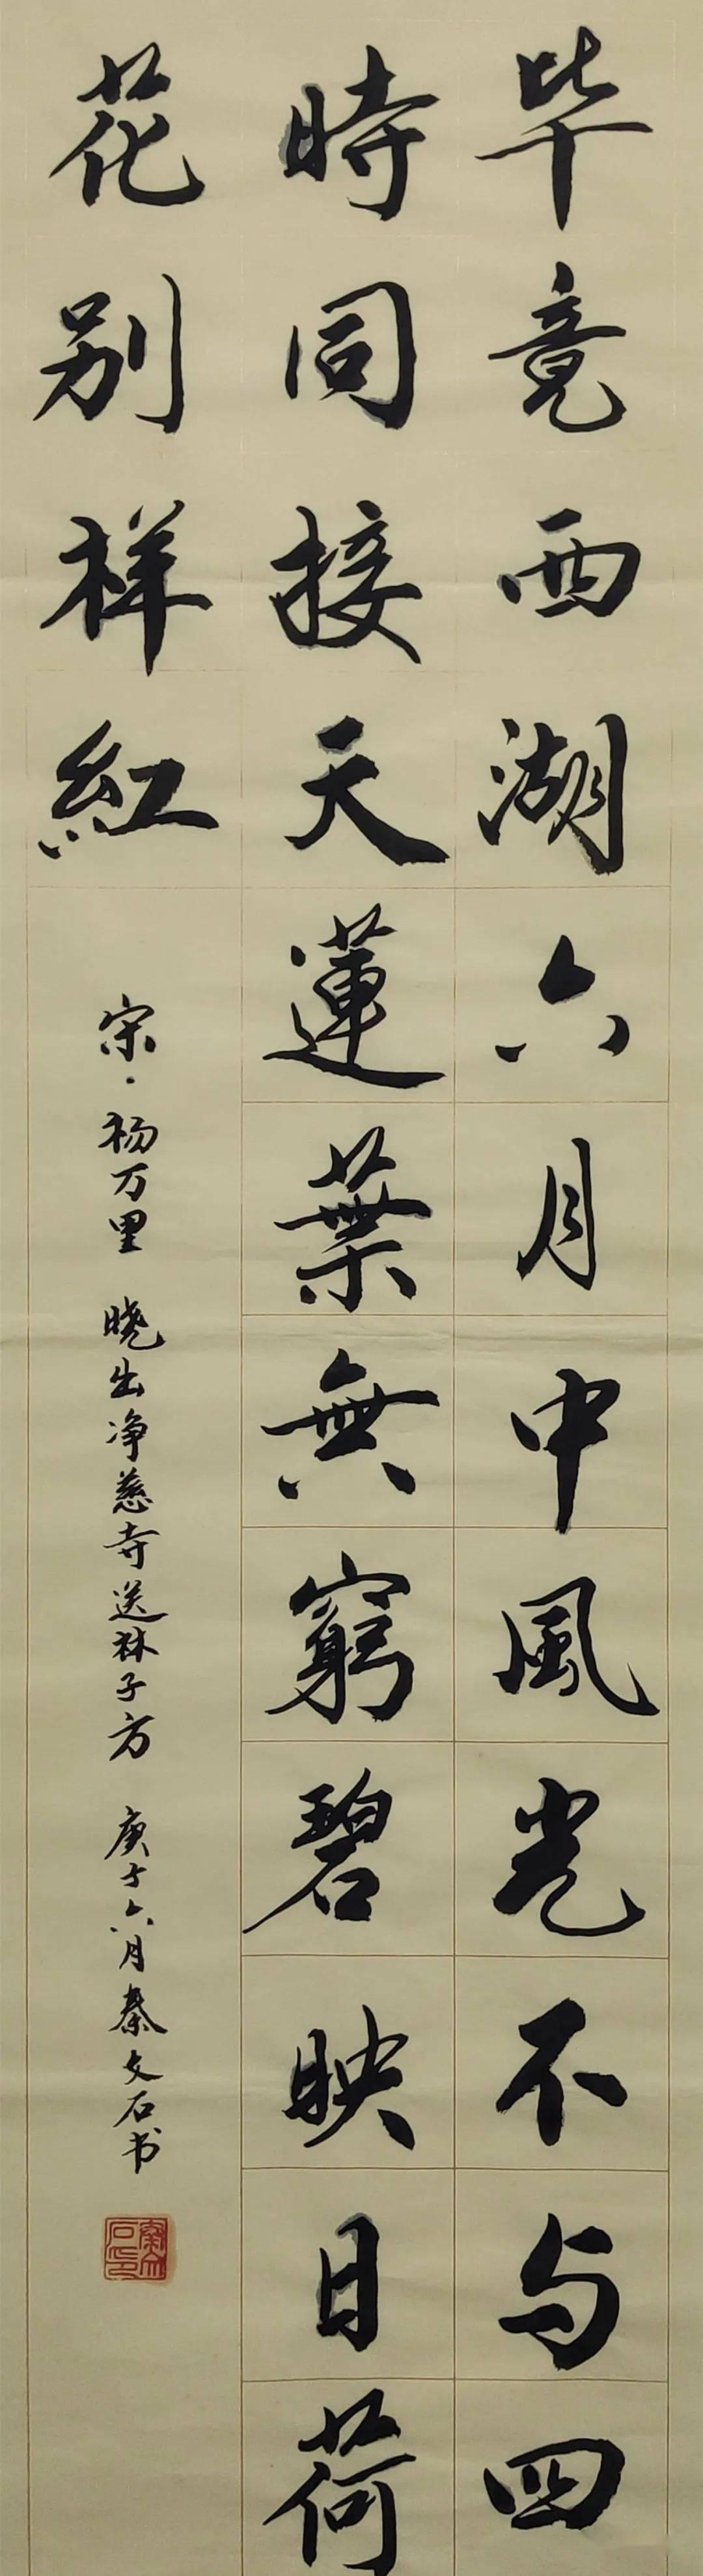 毕竟西湖六月中風光不与四
時同接天蓮葉無窮碧映日荷
花别样紅
宋·杨万里 晓出净慈寺送林子方 庚子六月秦文石书